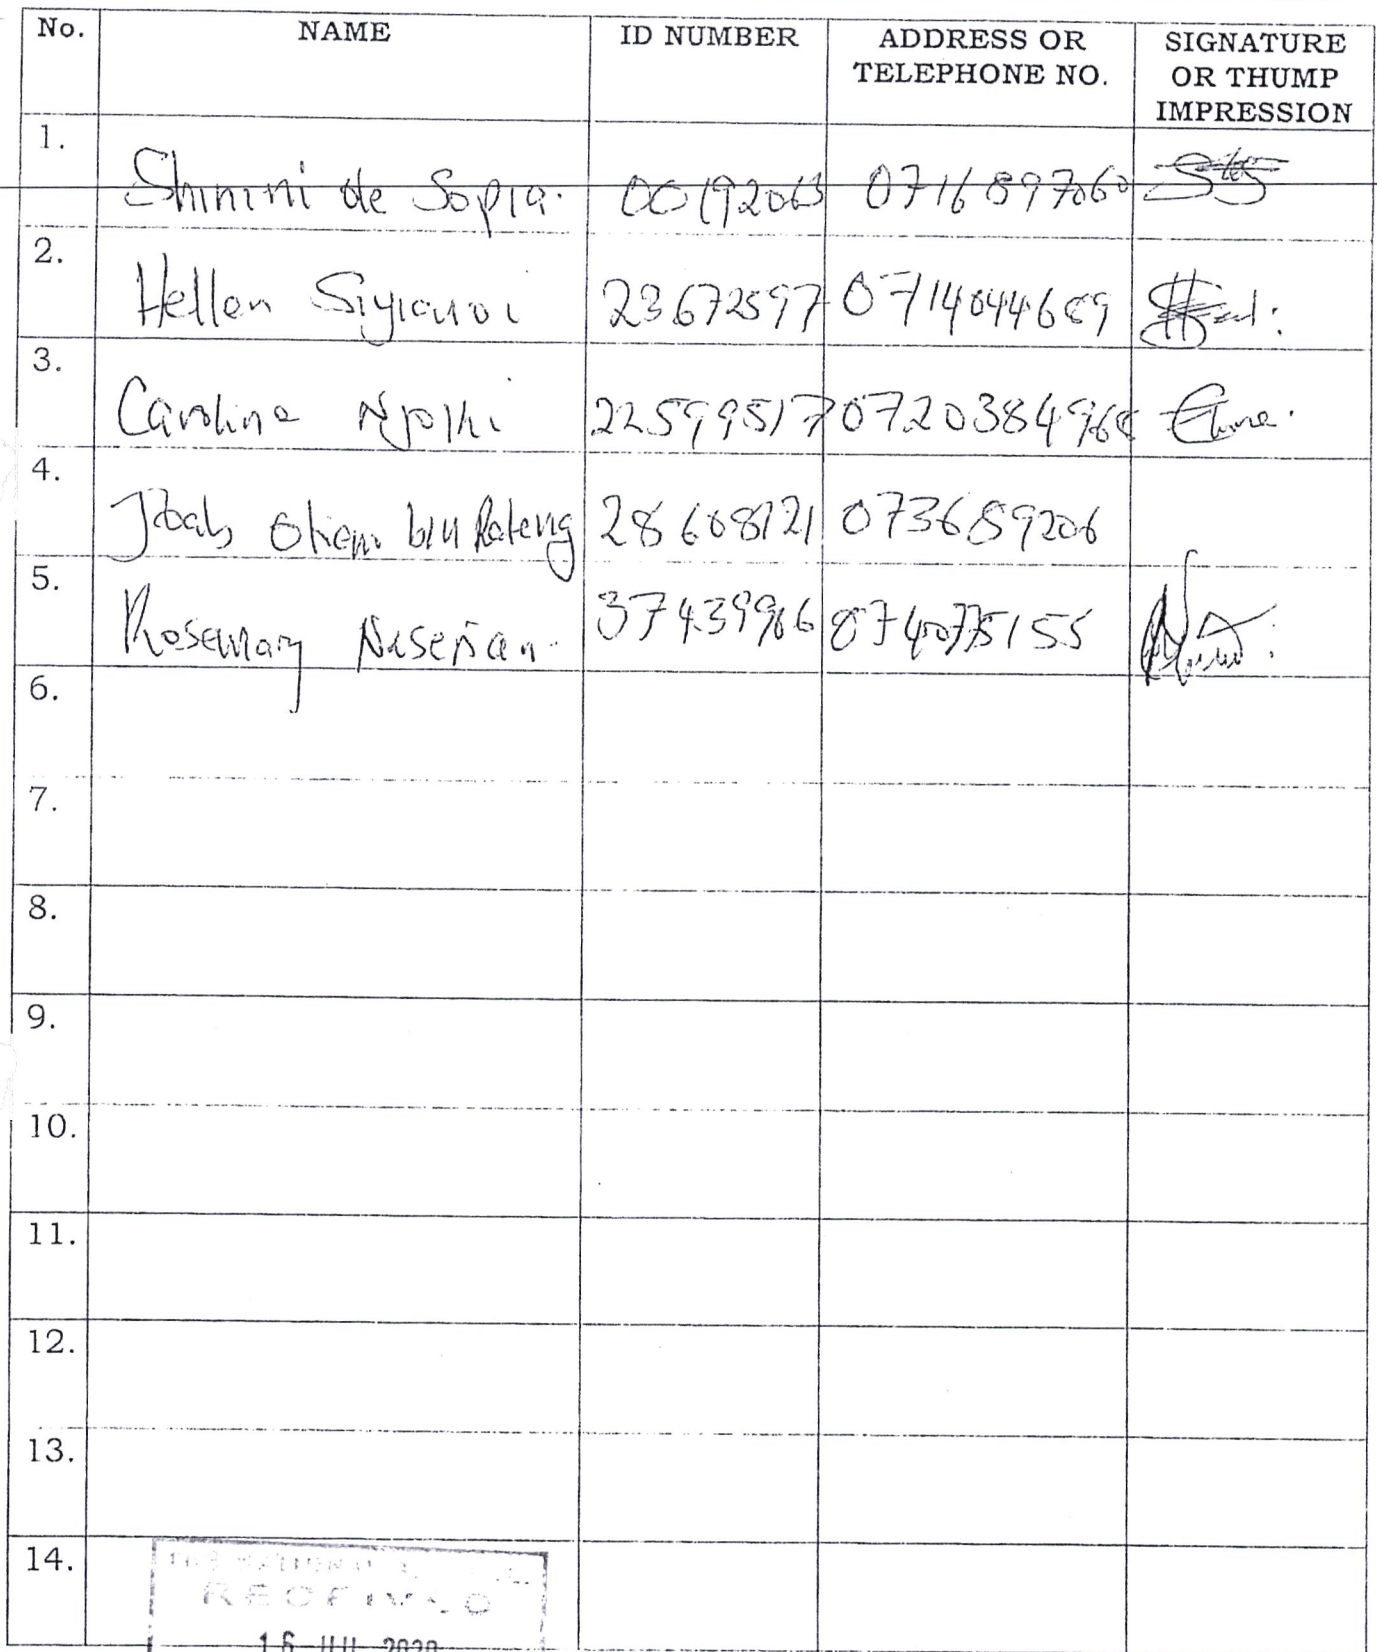 No. NAME ID NUMBER ADDRESS OR TELEPHONE NO. SIGNATURE OR THUMP IMPRESSION
1. Shinini de Sopia. 00192063 0716897060
2. Hellen 23672597 0714044689
3. Caroline Njoki 22599517 0720384968
4. 28608121 073689206
5. Rosemary 37439966 0740775155
6.
7.
8.
9.
10.
11.
12.
13.
14.
RECEIVED
16 JUL 2020